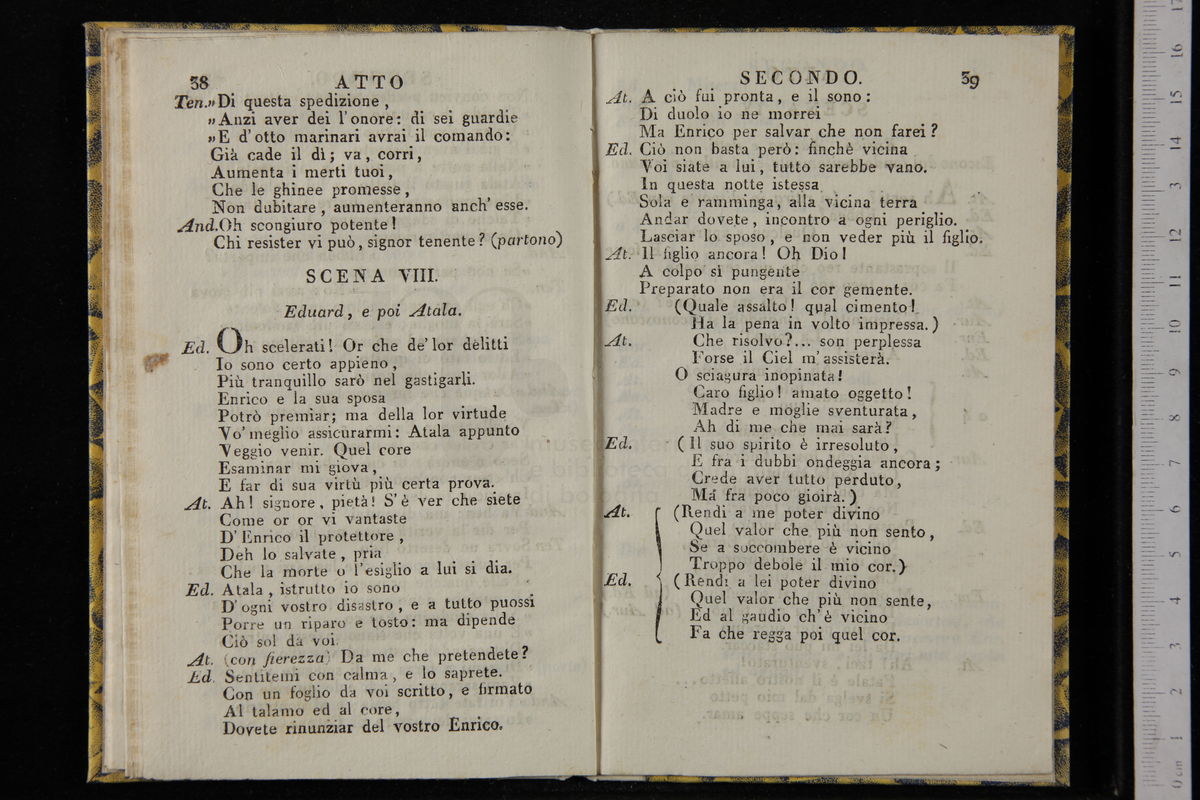 38 ATTO
Ten.» Di questa spedizione,
» Anzi aver dei l'onore: di sei guardie
» E d'otto marinari avrai il comando:
Già cade il dì; va, corri,
Aumenta i merti tuoi,
Che le ghinee promesse,
Non dubitare, aumenteranno anch' esse.
And. Oh scongiuro potente!
Chi resister vi può, signor tenente? (partono)
SCENA VIII.
Eduard, e poi Atala.
Ed. Oh scelerati! Or che de' lor delitti
Io sono certo appieno,
Più tranquillo sarò nel gastigarli.
Enrico e la sua sposa
Potrò premiar; ma della lor virtude
Vo' meglio assicurarmi: Atala appunto
Veggio venir. Quel core
Esaminar mi giova,
E far di sua virtù più certa prova.
At. Ah! signore, pietà! S'è ver che siete
Come or or vi vantaste
D'Enrico il protettore,
Deh lo salvate, pria
Che la morte o l'esiglio a lui si dia.
Ed. Atala, istrutto io sono
D'ogni vostro disastro, e a tutto puossi
Porre un riparo e tosto: ma dipende
Ciò sol da voi.
At. (con fierezza) Da me che pretendete?
Ed. Sentitemi con calma, e lo saprete.
Con un foglio da voi scritto, e firmato
Al talamo ed al core,
Dovete rinunziar del vostro Enrico.
SECONDO. 39
At. A ciò fui pronta, e il sono:
Di duolo io ne morrei
Ma Enrico per salvar che non farei?
Ed. Ciò non basta però: finchè vicina
Voi siate a lui, tutto sarebbe vano.
In questa notte istessa
Sola e ramminga, alla vicina terra
Andar dovete, incontro a ogni periglio.
Lasciar lo sposo, e non veder più il figlio.
At. Il figlio ancora! Oh Dio!
A colpo sì pungente
Preparato non era il cor gemente.
Ed. (Quale assalto! qual cimento!
Ha la pena in volto impressa.)
At. Che risolvo?... son perplessa
Forse il Ciel m'assisterà.
O sciagura inopinata!
Caro figlio! amato oggetto!
Madre e moglie sventurata,
Ah di me che mai sarà?
Ed. (Il suo spirito è irresoluto,
E fra i dubbi ondeggia ancora;
Crede aver tutto perduto,
Ma fra poco gioirà.)
At. (Rendi a me poter divino
Quel valor che più non sento,
Se a soccombere è vicino
Troppo debole il mio cor.)
Ed. (Rendi a lei poter divino
Quel valor che più non sente,
Ed al gaudio ch'è vicino
Fa che regga poi quel cor.